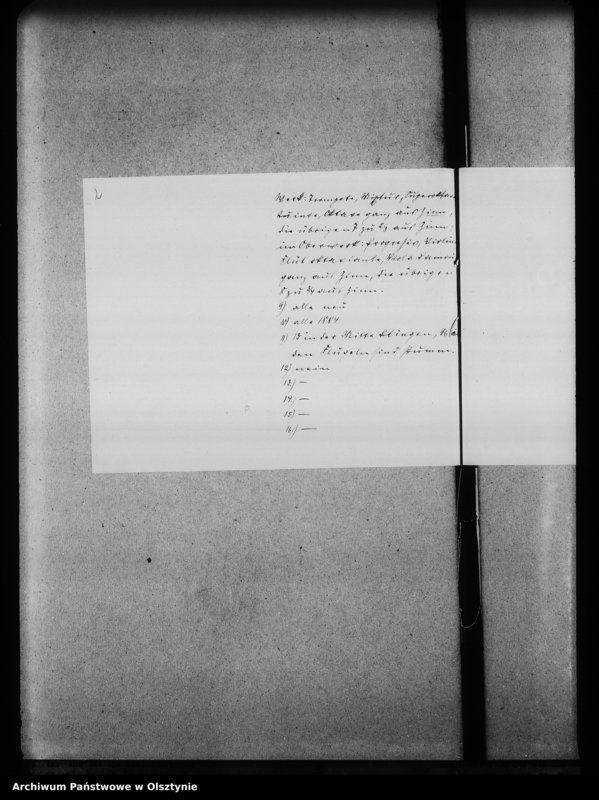 2
Werk: Trompete, Mixtur, Superoktave
Quinte, Oktave ganz aus Zinn,
die übrigen 7 zu 2/3 aus Zinn
im Oberwerk: Progressiv, Violine
Flut oktaviante, Viola d'amour
ganz aus Zinn, die übrigen
5 zu 3/4 aus Zinn.
9) alle neu
10) alle 1884
11) 13 in der Mitte klingen,
den Flügeln sind stumm.
12) nein
13) —
14) —
15) —
16) —
Archiwum Państwowe w Olsztynie